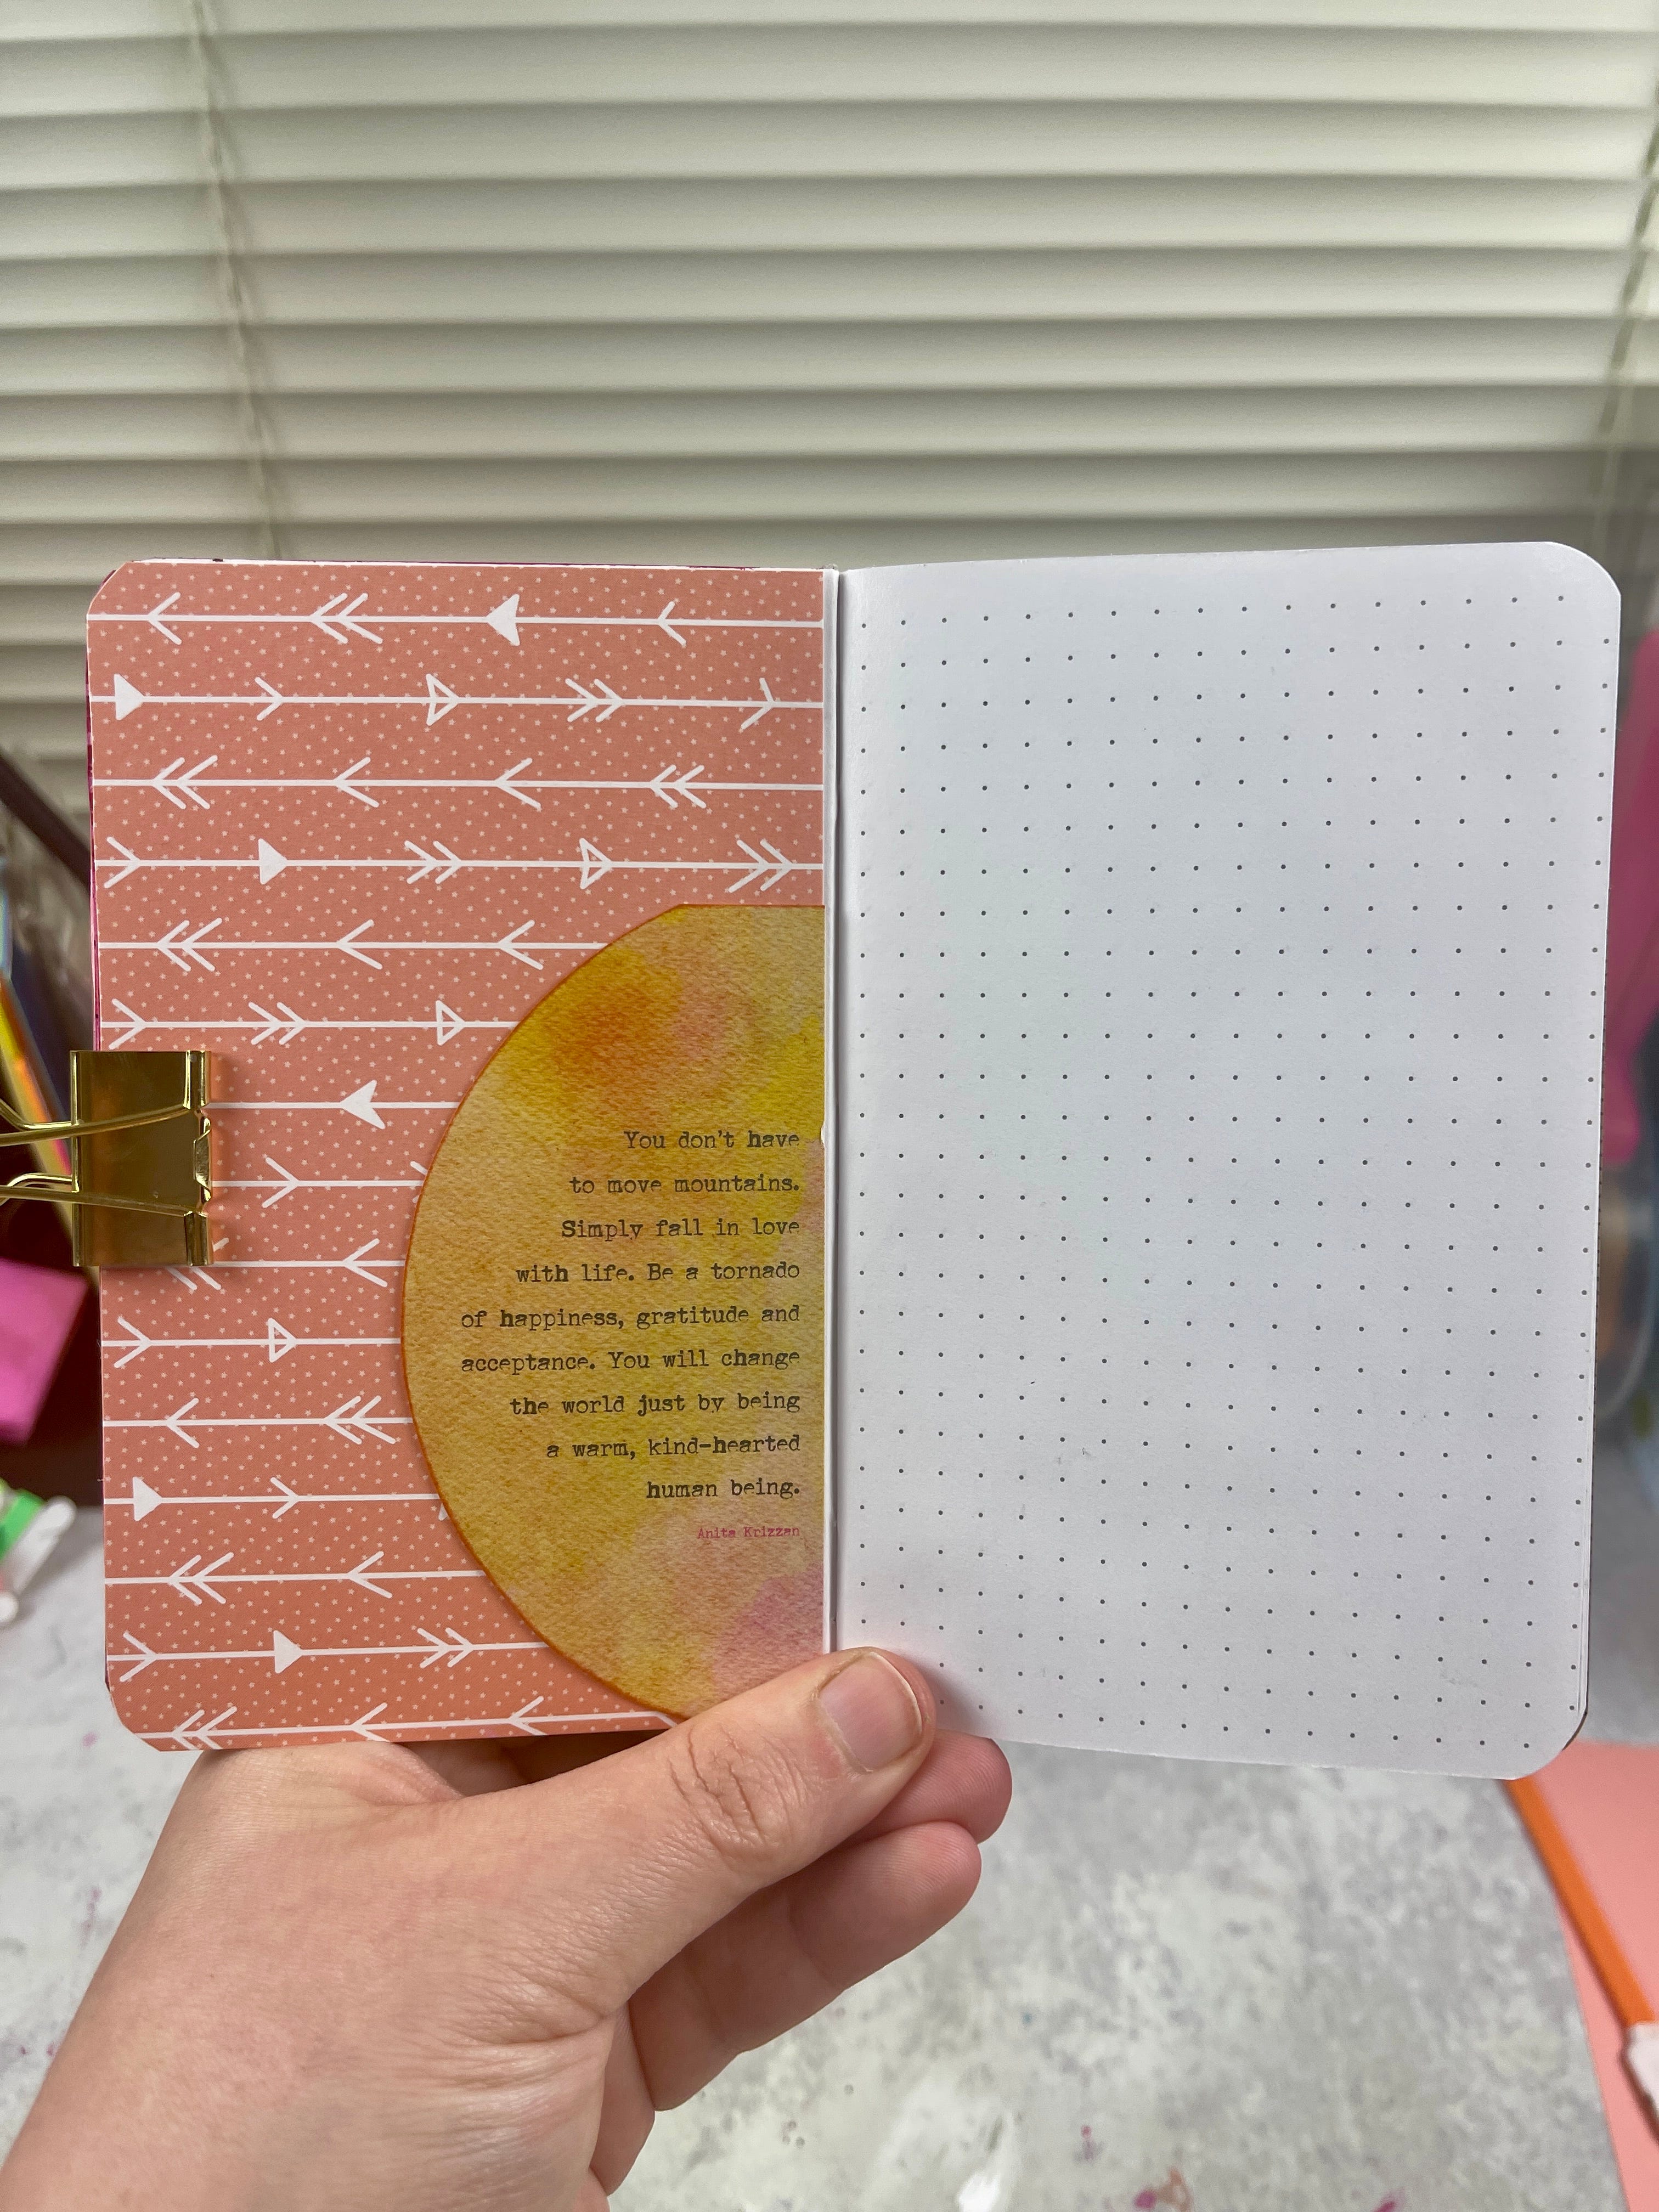 You don't have
to move mountains.
Simply fall in love
with life. Be a tornado
of happiness, gratitude and
acceptance. You will change
the world just by being
a warm, kind-hearted
human being.
Anita Krizzan